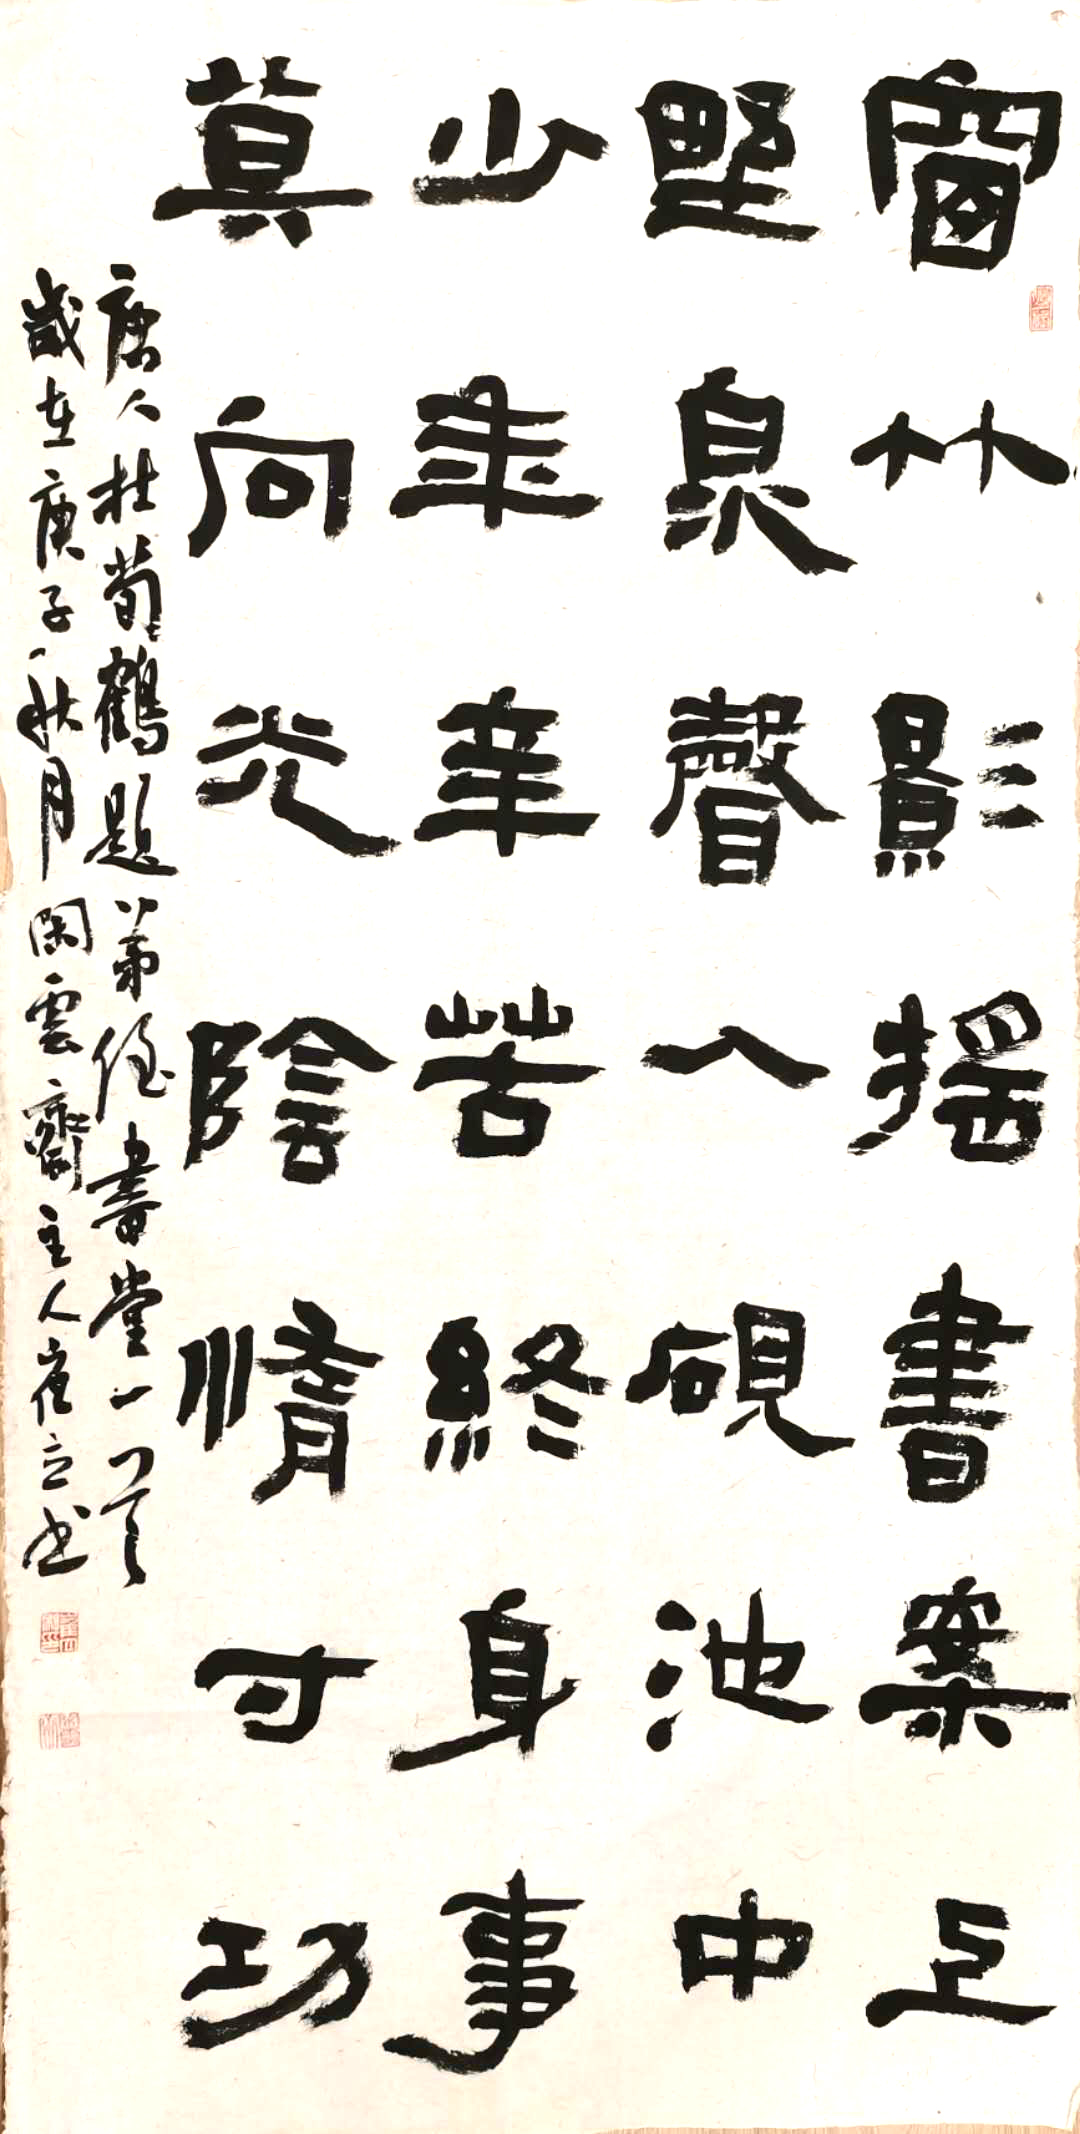 窗竹影搖書案上
野泉聲入硯池中
少年辛苦終身事
莫向光陰惰寸功
唐人杜荀鶴題弟侄書堂一首
歲在庚子秋月閑雲齋主人崔立书